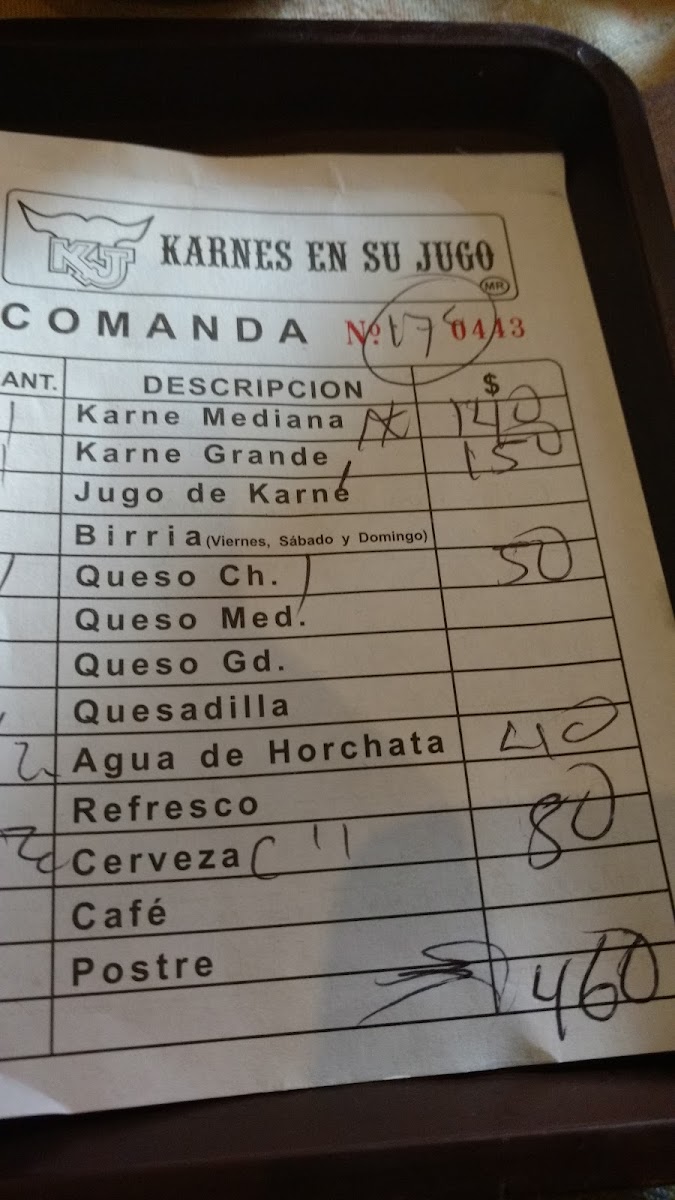 KJ KARNES EN SU JUGO
MR
COMANDA Nº 0443
ANT. DESCRIPCION $
1 Karne Mediana 140
1 Karne Grande 150
Jugo de Karne
Birria (Viernes, Sábado y Domingo)
1 Queso Ch. 50
Queso Med.
Queso Gd.
Quesadilla
2 Agua de Horchata 40
Refresco
2 Cerveza C 11 80
Café
Postre
460